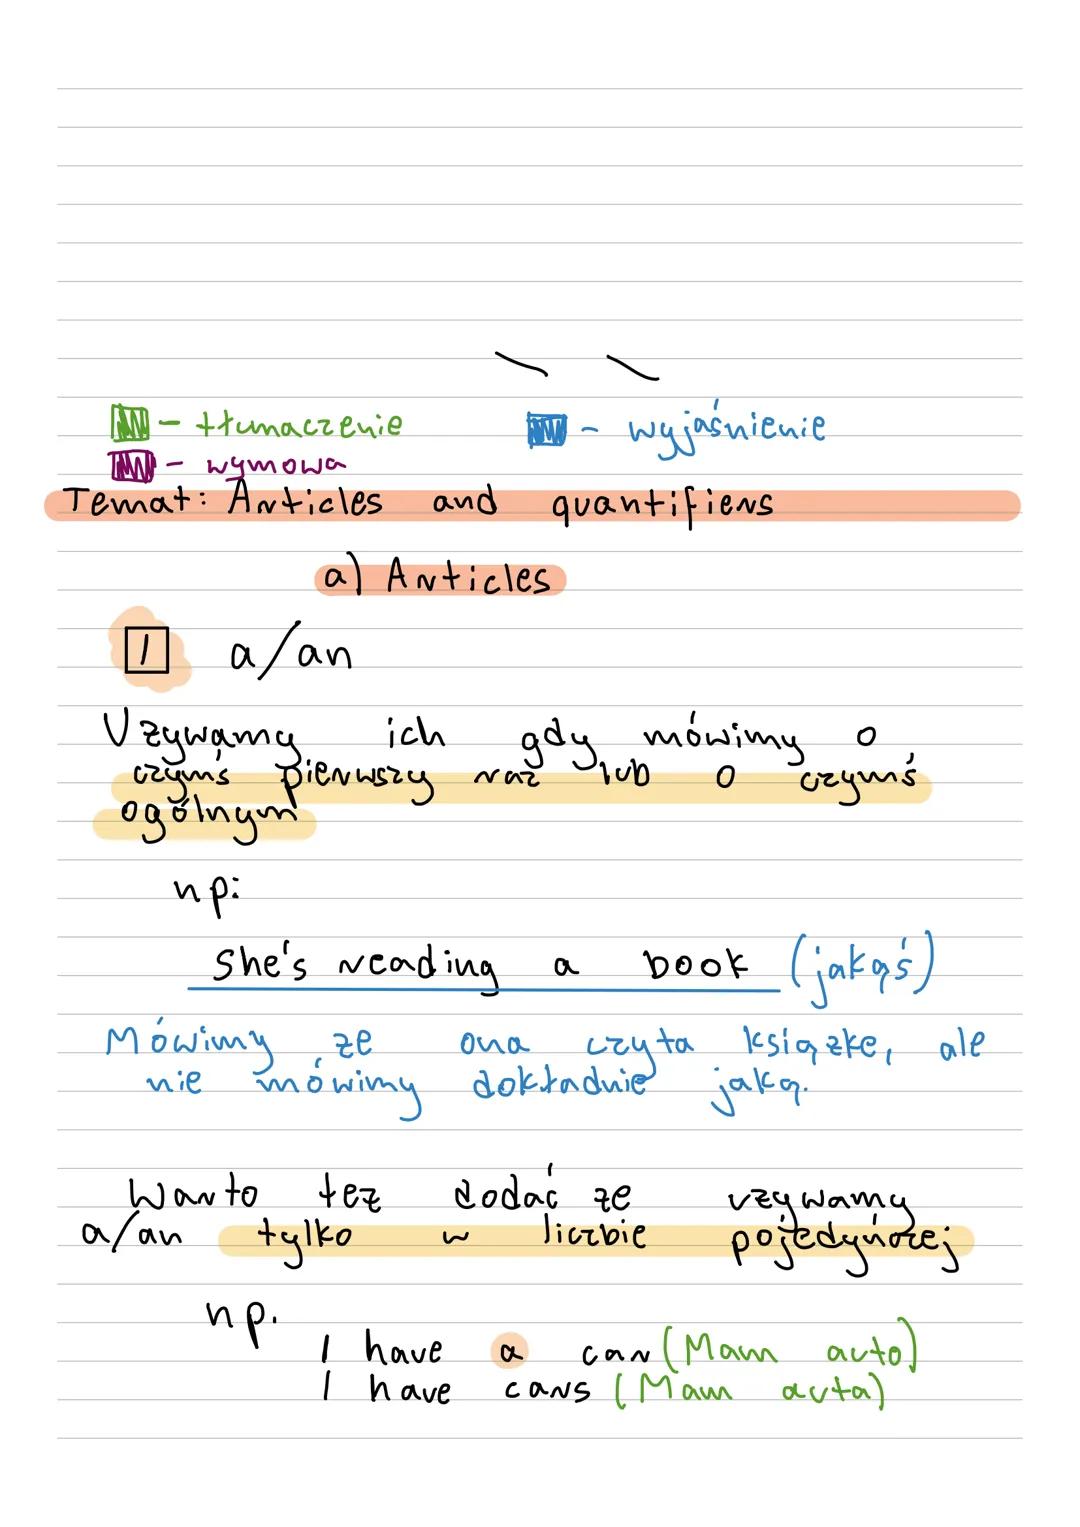 - tłumaczenie
- wyjaśnienie
- wymowa
Temat: Articles and quantifiers
a) Articles
1 a/an
Uzywamy ich gdy mówimy o
czymś pierwszy raz lub o czymś
ogólnym
np:
She's reading a book (jakąś)
Mówimy ze ona czyta ksiązke, ale
nie mówimy dokładnie jaką.
Warto tez dodać ze uzywamy
a/an tylko w liczbie pojedyńczej
np.
I have a car (Mam auto)
I have cars (Mam auta)